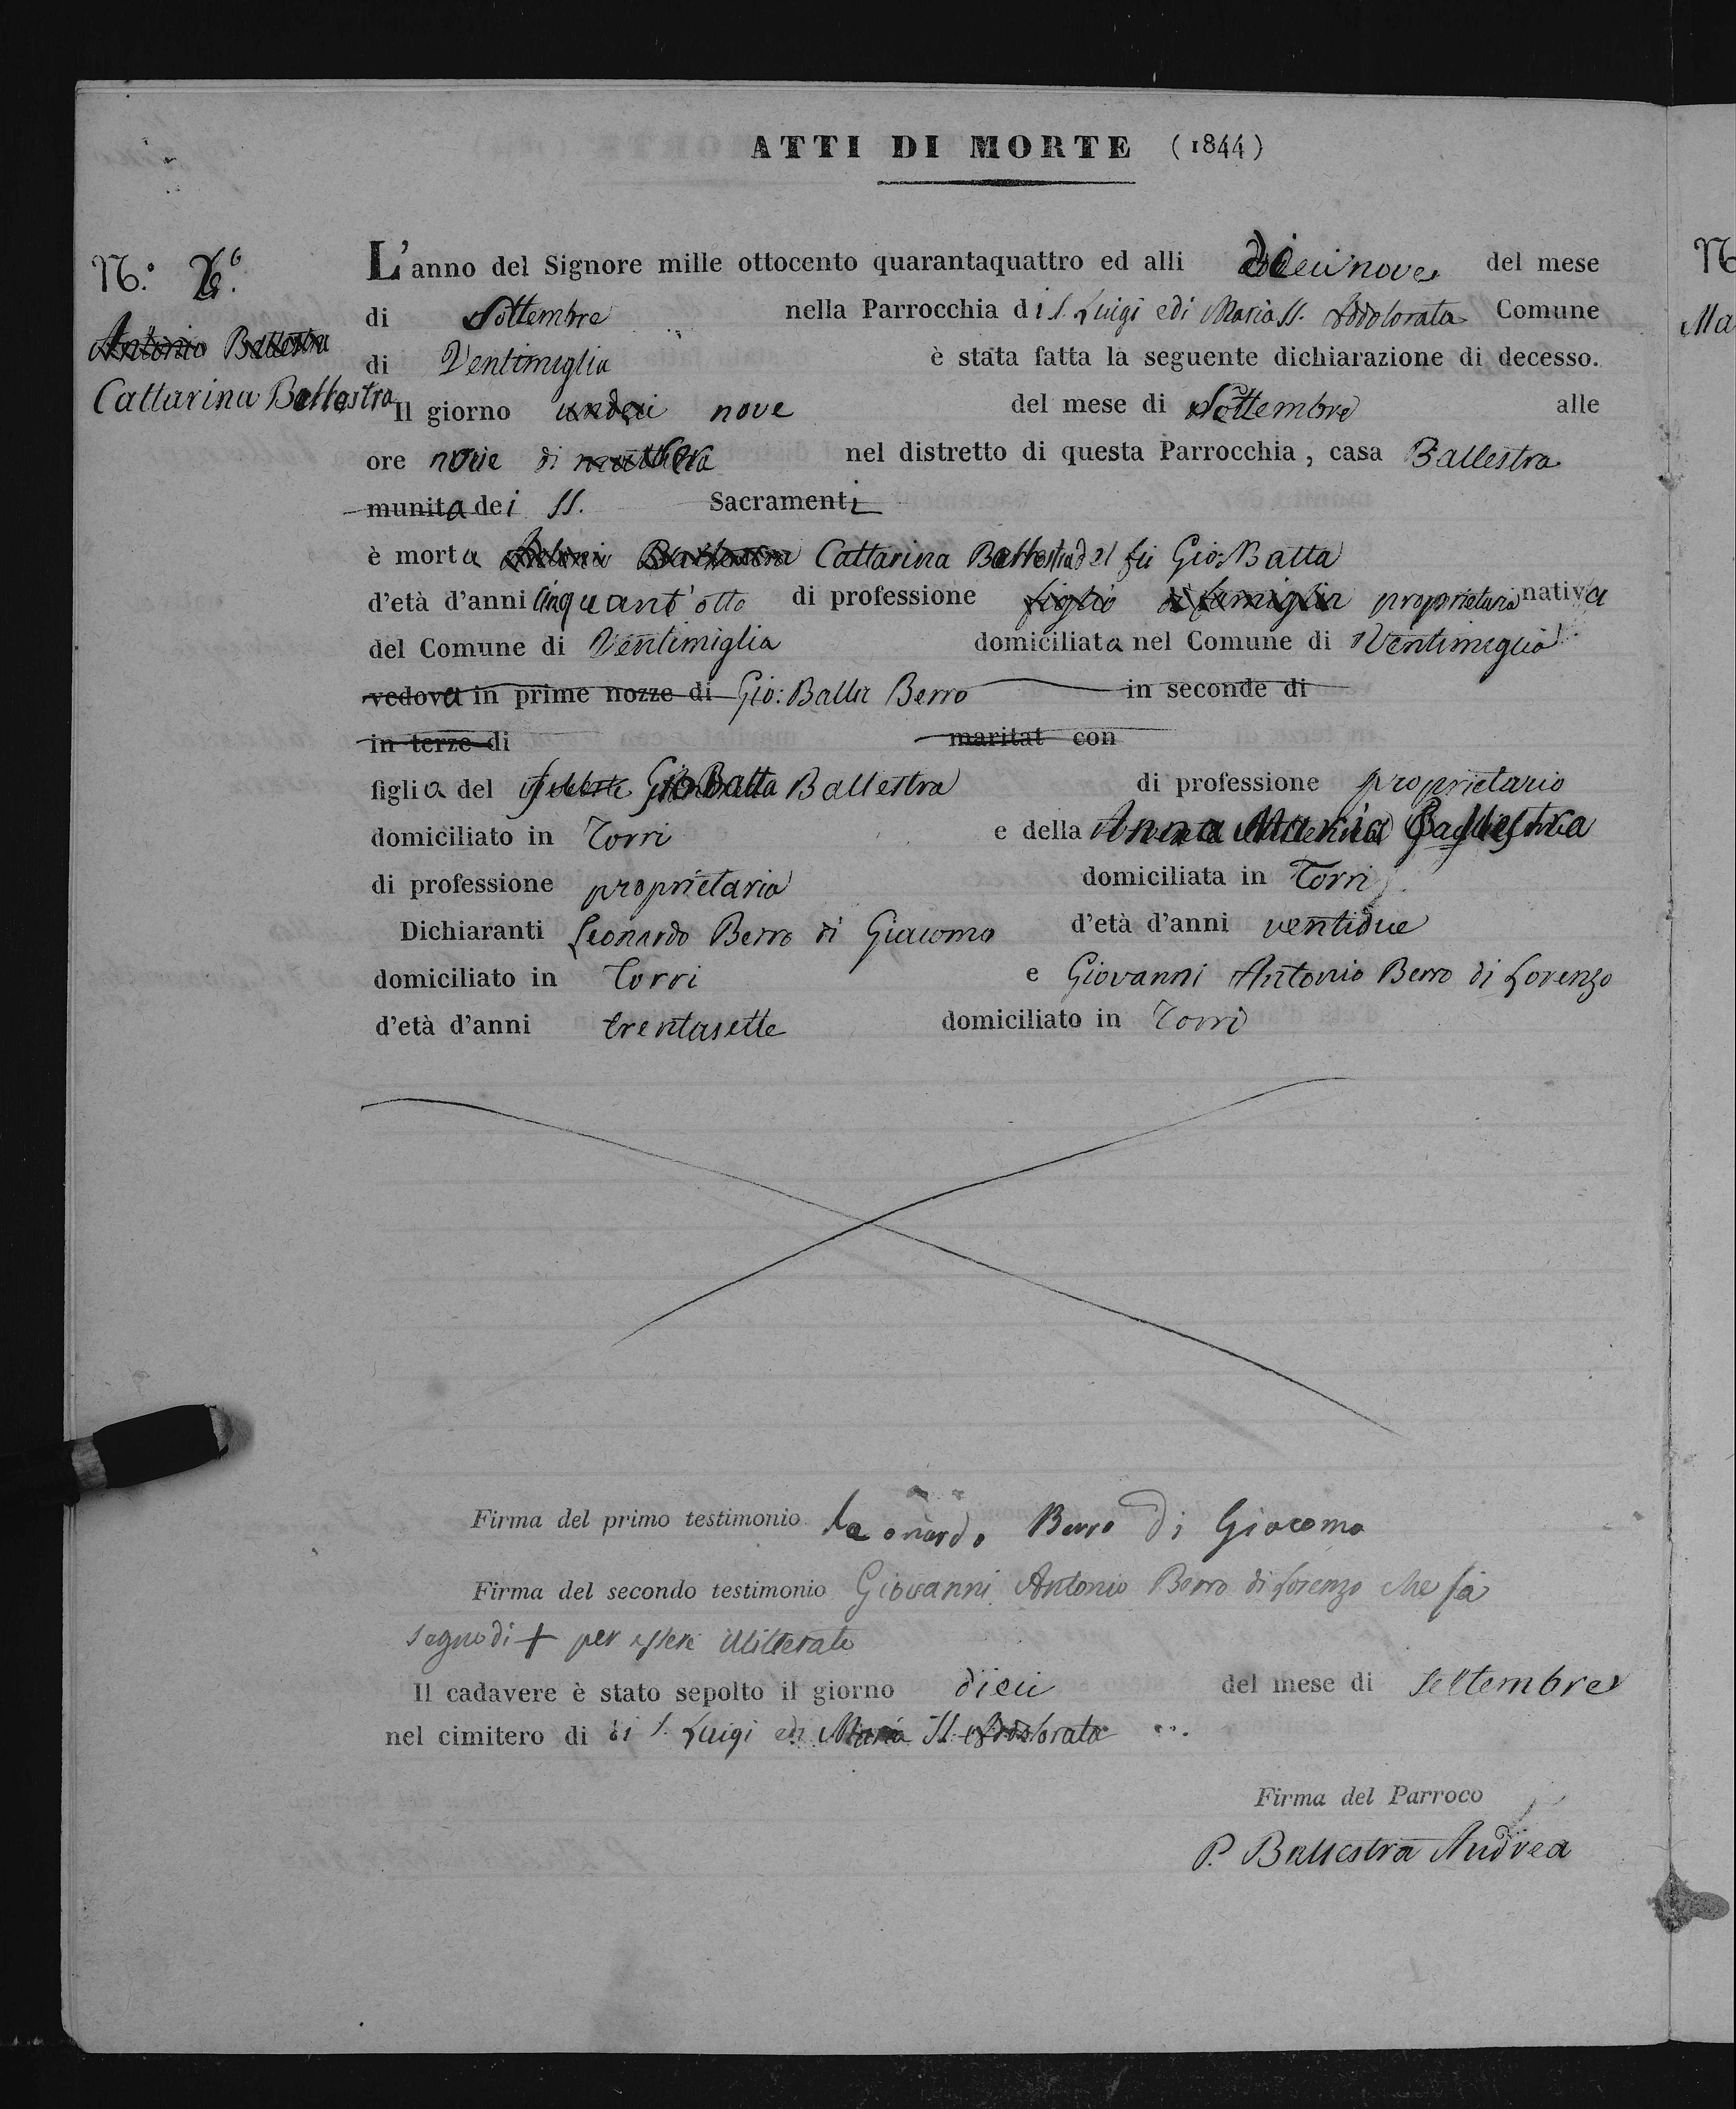 ATTI DI MORTE (1844)
N.° 6.°
Antonio Ballestra
Cattarina Ballestra
L'anno del Signore mille ottocento quarantaquattro ed alli nove del mese
di Settembre nella Parrocchia di S. Luigi e di Maria SS. Addolorata Comune
di Ventimiglia è stata fatta la seguente dichiarazione di decesso.
Il giorno undeci nove del mese di Settembre alle
ore nove di nel distretto di questa Parrocchia, casa Ballestra
munita dei SS. Sacramenti
è morta Antonio Ballestra Cattarina Ballestra del fu Gio: Batta
d'età d'anni cinquant'otto di professione figlio di famiglia proprietaria nativa
del Comune di Ventimiglia domiciliata nel Comune di Ventimiglia
vedova in prime nozze di Gio: Batta Berro in seconde di
in terze di maritat con
figlia del Gio Batta Ballestra di professione proprietario
domiciliato in Torri e della Anna Maria Ballestra
di professione proprietaria domiciliata in Torri
Dichiaranti Leonardo Berro di Giacomo d'età d'anni ventidue
domiciliato in Torri e Giovanni Antonio Berro di Lorenzo
d'età d'anni trentasette domiciliato in Torri
Firma del primo testimonio Leonardo Berro di Giacomo
Firma del secondo testimonio Giovanni Antonio Berro di Lorenzo che fà
segno di + per essere illitterato
Il cadavere è stato sepolto il giorno dieci del mese di Settembre
nel cimitero di di S. Luigi e di Maria SS. Addolorata
Firma del Parroco
P. Ballestra Andrea
N
Ma